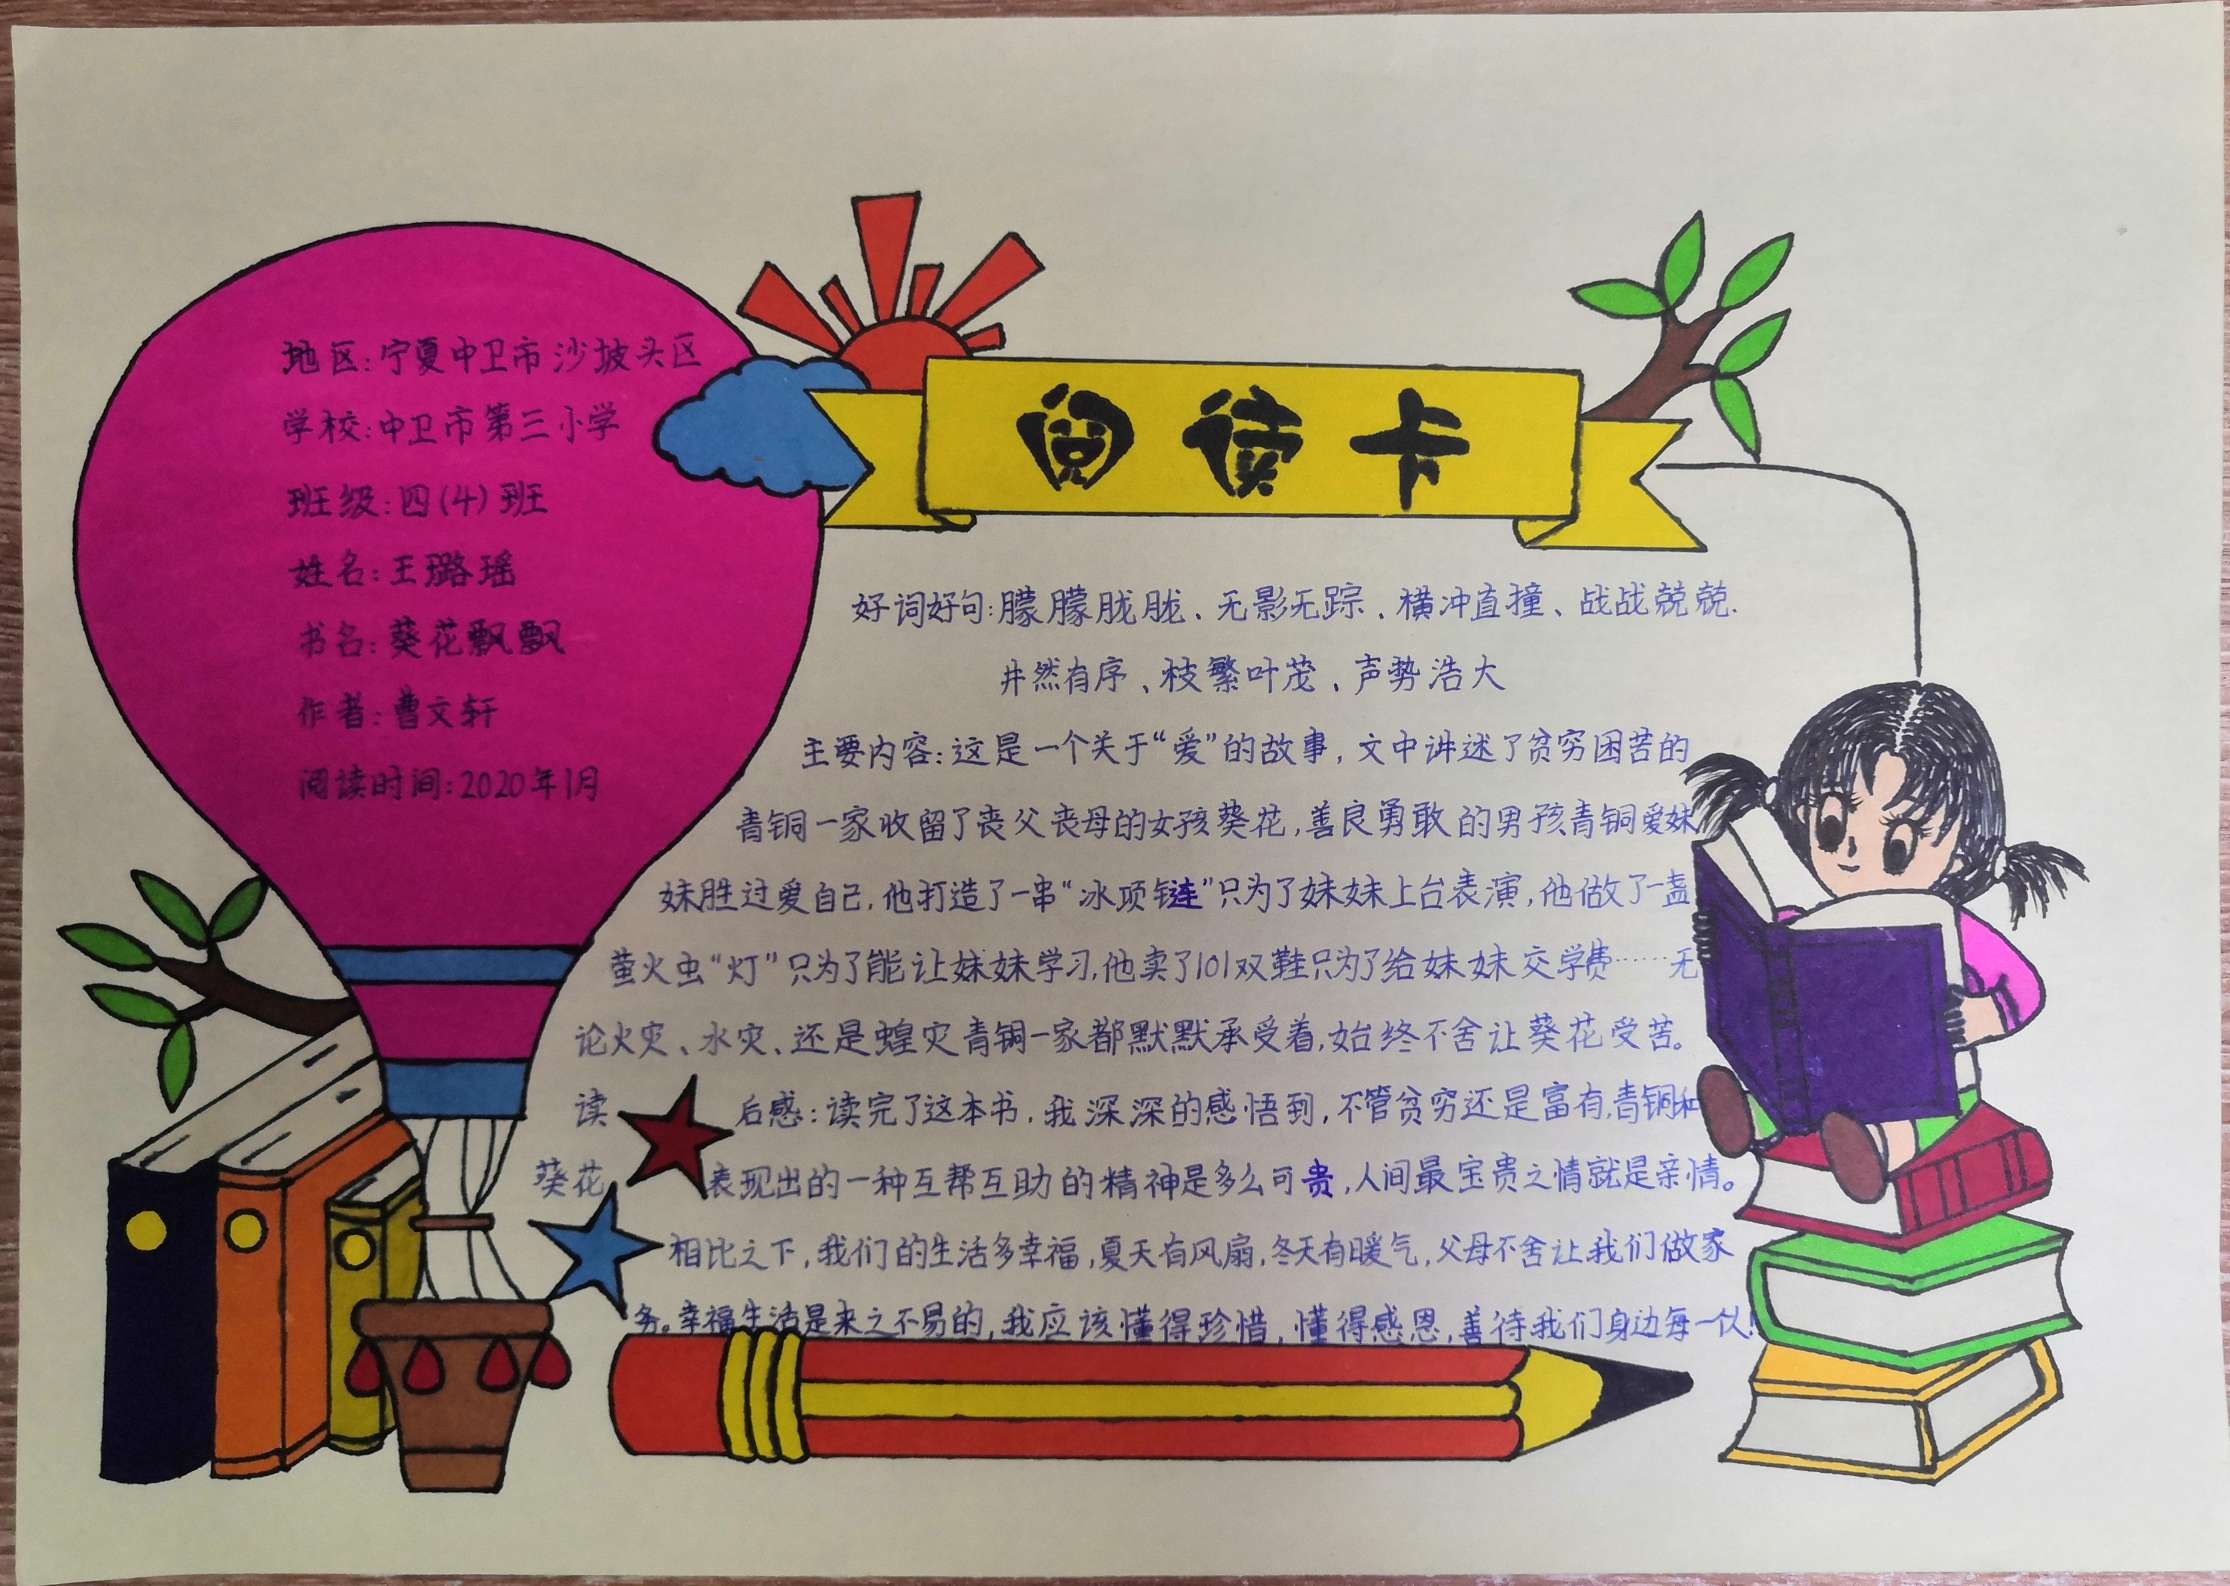 阅读卡
地区:宁夏中卫市沙坡头区
学校:中卫市第三小学
班级:四(4)班
姓名:王璐瑶
书名:葵花飘飘
作者:曹文轩
阅读时间:2020年1月
好词好句:朦朦胧胧、无影无踪、横冲直撞、战战兢兢.
井然有序、枝繁叶茂、声势浩大
主要内容:这是一个关于“爱”的故事,文中讲述了贫穷困苦的
青铜一家收留了丧父丧母的女孩葵花,善良勇敢的男孩青铜爱妹
妹胜过爱自己,他打造了一串“冰项链”只为了妹妹上台表演,他做了一盏
萤火虫“灯”只为了能让妹妹学习,他卖了101双鞋只为了给妹妹交学费……无
论火灾、水灾、还是蝗灾青铜一家都默默承受着,始终不舍让葵花受苦。
读后感:读完了这本书,我深深的感悟到,不管贫穷还是富有,青铜和
葵花表现出的一种互帮互助的精神是多么可贵,人间最宝贵之情就是亲情。
相比之下,我们的生活多幸福,夏天有风扇,冬天有暖气,父母不舍让我们做家
务。幸福生活是来之不易的,我应该懂得珍惜,懂得感恩,善待我们身边每一